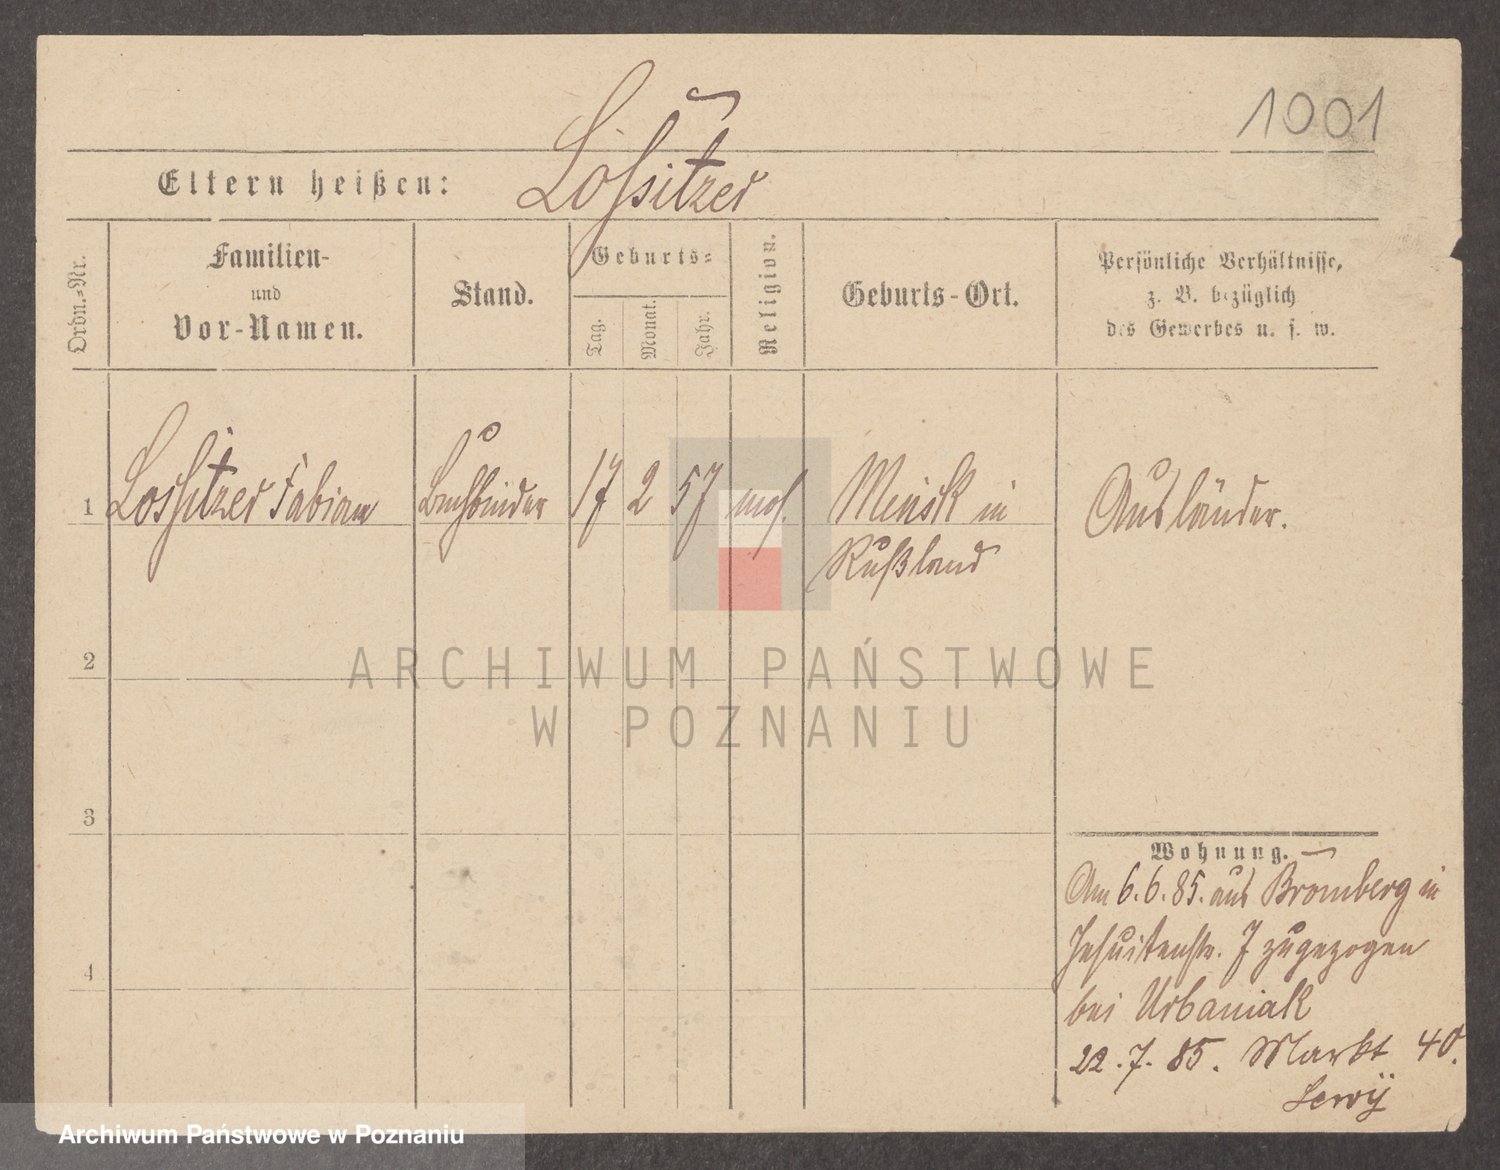 1001
Eltern heißen: Lossitzer
Ordn.-Nr.
Familien-
und
Vor-Namen.
Stand.
Geburts-
Tag.
Monat.
Jahr.
Religion.
Geburts-Ort.
Persönliche Verhältnisse,
z. B. bezüglich
des Gewerbes u. s. w.
1 Lossitzer Fabian Buchbinder 17 2 57 mos. Minsk in Ausländer.
Rußland
2
ARCHIWUM PAŃSTWOWE
W POZNANIU
3
Wohnung.
Am 6.6.85. aus Bromberg in
Jesuitenstr. 7 zugezogen
4
bei Urbaniak
22.7.85. Markt 40.
Lewÿ
Archiwum Państwowe w Poznaniu